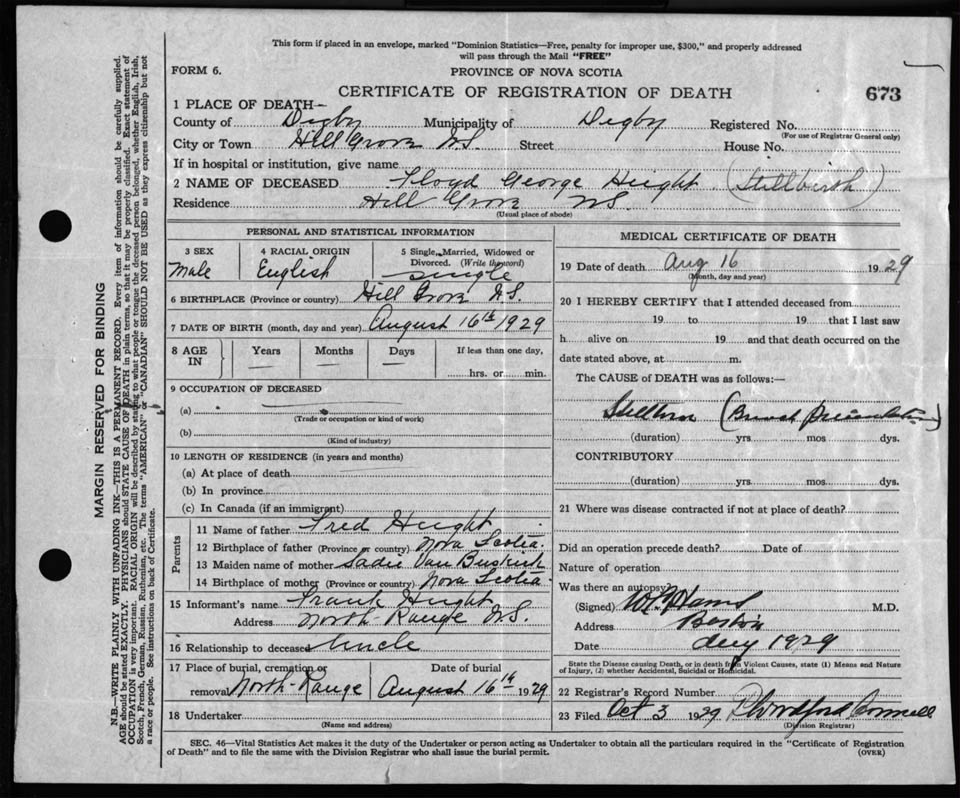 This form if placed in an envelope, marked "Dominion Statistics—Free, penalty for improper use, $300," and properly addressed
will pass through the Mail "FREE"
FORM 6.
PROVINCE OF NOVA SCOTIA
CERTIFICATE OF REGISTRATION OF DEATH
673
1 PLACE OF DEATH—
County of Digby Municipality of Digby Registered No.
(For use of Registrar General only)
City or Town Hill Grove N.S. Street House No.
If in hospital or institution, give name
2 NAME OF DECEASED Floyd George Height (Stillbirth)
Residence Hill Grove N.S.
(Usual place of abode)
PERSONAL AND STATISTICAL INFORMATION
3 SEX 4 RACIAL ORIGIN 5 Single, Married, Widowed or
Divorced. (Write the word)
Male English single
6 BIRTHPLACE (Province or country) Hill Grove N.S.
7 DATE OF BIRTH (month, day and year) August 16th 1929
8 AGE IN Years Months Days If less than one day,
— — — hrs. or min.
9 OCCUPATION OF DECEASED
(a)
(Trade or occupation or kind of work)
(b)
(Kind of industry)
10 LENGTH OF RESIDENCE (in years and months)
(a) At place of death
(b) In province
(c) In Canada (if an immigrant)
Parents
11 Name of father Fred Height
12 Birthplace of father (Province or country) Nova Scotia
13 Maiden name of mother Sadie Van Buskirk
14 Birthplace of mother (Province or country) Nova Scotia
15 Informant's name Frank Height
Address North Range N.S.
16 Relationship to deceased Uncle
17 Place of burial, cremation or Date of burial
removal North Range August 16th 1929
18 Undertaker
(Name and address)
MEDICAL CERTIFICATE OF DEATH
19 Date of death Aug 16 1929
(Month, day and year)
20 I HEREBY CERTIFY that I attended deceased from
19 to 19 that I last saw
h alive on 19 and that death occurred on the
date stated above, at m.
The CAUSE of DEATH was as follows:—
Stillborn (Breech Presentation)
(duration) yrs. mos dys.
CONTRIBUTORY
(duration) yrs. mos dys.
21 Where was disease contracted if not at place of death?
Did an operation precede death? Date of
Nature of operation
Was there an autopsy?
(Signed) M.D.
Address
Date 1929
State the Disease causing Death, or in death from Violent Causes, state (1) Means and Nature
of Injury, (2) whether Accidental, Suicidal or Homicidal.
22 Registrar's Record Number
23 Filed Oct 3 1929
(Division Registrar)
SEC. 46—Vital Statistics Act makes it the duty of the Undertaker or person acting as Undertaker to obtain all the particulars required in the "Certificate of Registration
of Death" and to file the same with the Division Registrar who shall issue the burial permit.
(OVER)
MARGIN RESERVED FOR BINDING
N.B.—WRITE PLAINLY WITH UNFADING INK—THIS IS A PERMANENT RECORD. Every item of information should be carefully supplied.
AGE should be stated EXACTLY. PHYSICIANS should STATE CAUSE OF DEATH in plain terms, so that it may be properly classified. Exact statement of
OCCUPATION is very important. RACIAL ORIGIN will be described by stating to what people or tongue the deceased person belonged, whether English, Irish,
Scotch, French, German, Russian, Ruthenian, etc. The terms "AMERICAN" or "CANADIAN" SHOULD NOT BE USED as they express citizenship but not
a race or people. See instructions on back of Certificate.